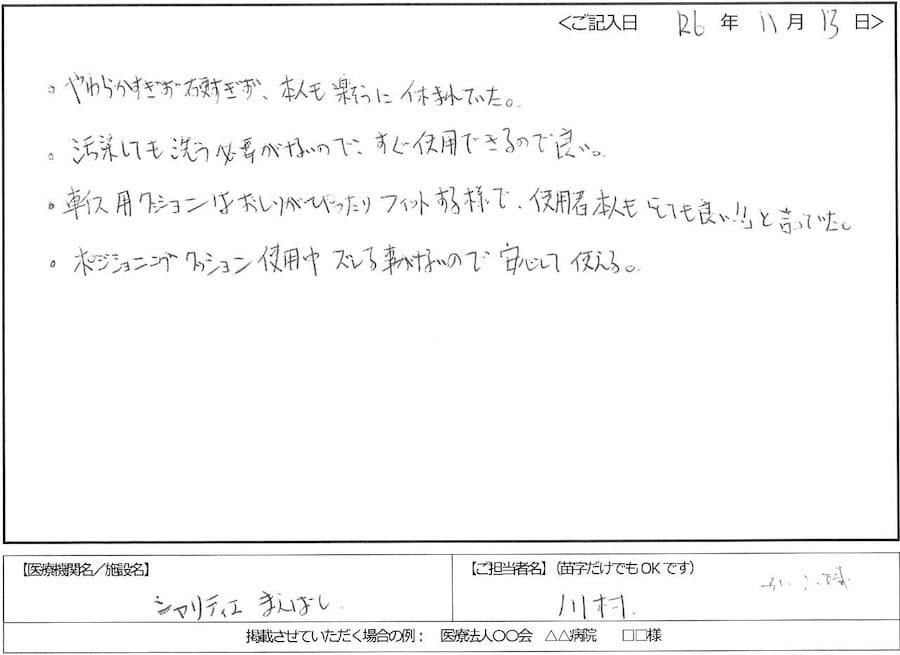 <ご記入日 R6 年 11 月 13 日>
。やわらかすぎず硬すぎず、本人も楽そうに休まれていた。
。汚染しても洗う必要がないので、すぐ使用できるので良い。
。車イス用クッションはおしりがぴったりフィットする様で、使用者本人も「とても良い!!」と言っていた。
。ポジショニングクッション使用中ズレる事がないので安心して使える。
【医療機関名／施設名】
シャリティエまえばし
【ご担当者名】(苗字だけでもOKです)
川村
掲載させていただく場合の例： 医療法人〇〇会 △△病院 □□様